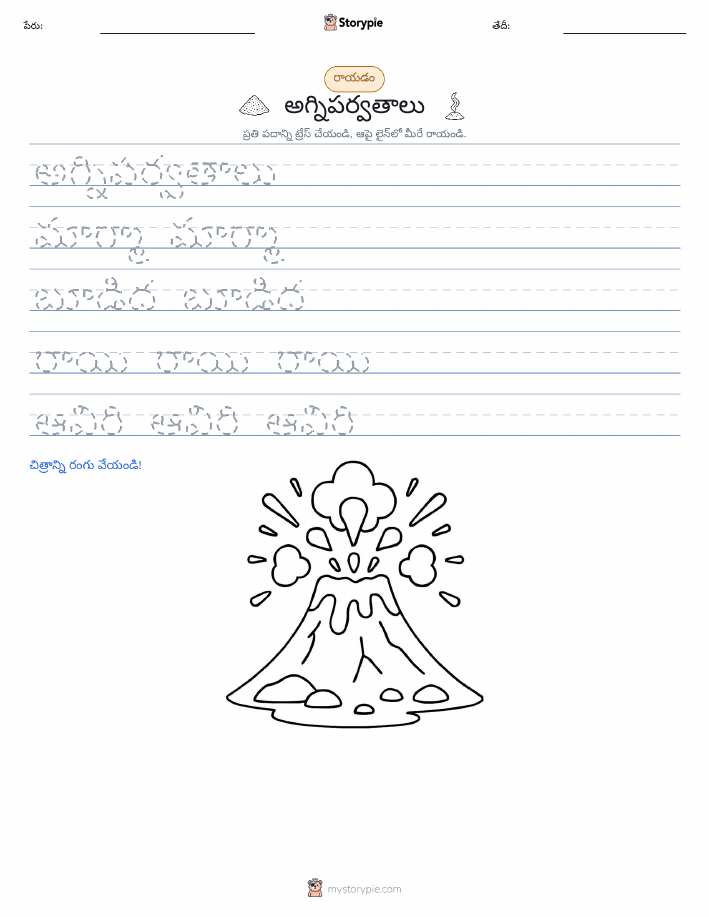 పేరు:
Storypie
తేదీ:
రాయడం
అగ్నిపర్వతాలు
ప్రతి పదాన్ని ట్రేస్ చేయండి, ఆపై లైన్‌లో మీరే రాయండి.
అగ్నిపర్వతాలు
బూడిద బూడిద
రాయి రాయి రాయి
ఆవిరి ఆవిరి ఆవిరి
చిత్రాన్ని రంగు వేయండి!
mystorypie.com